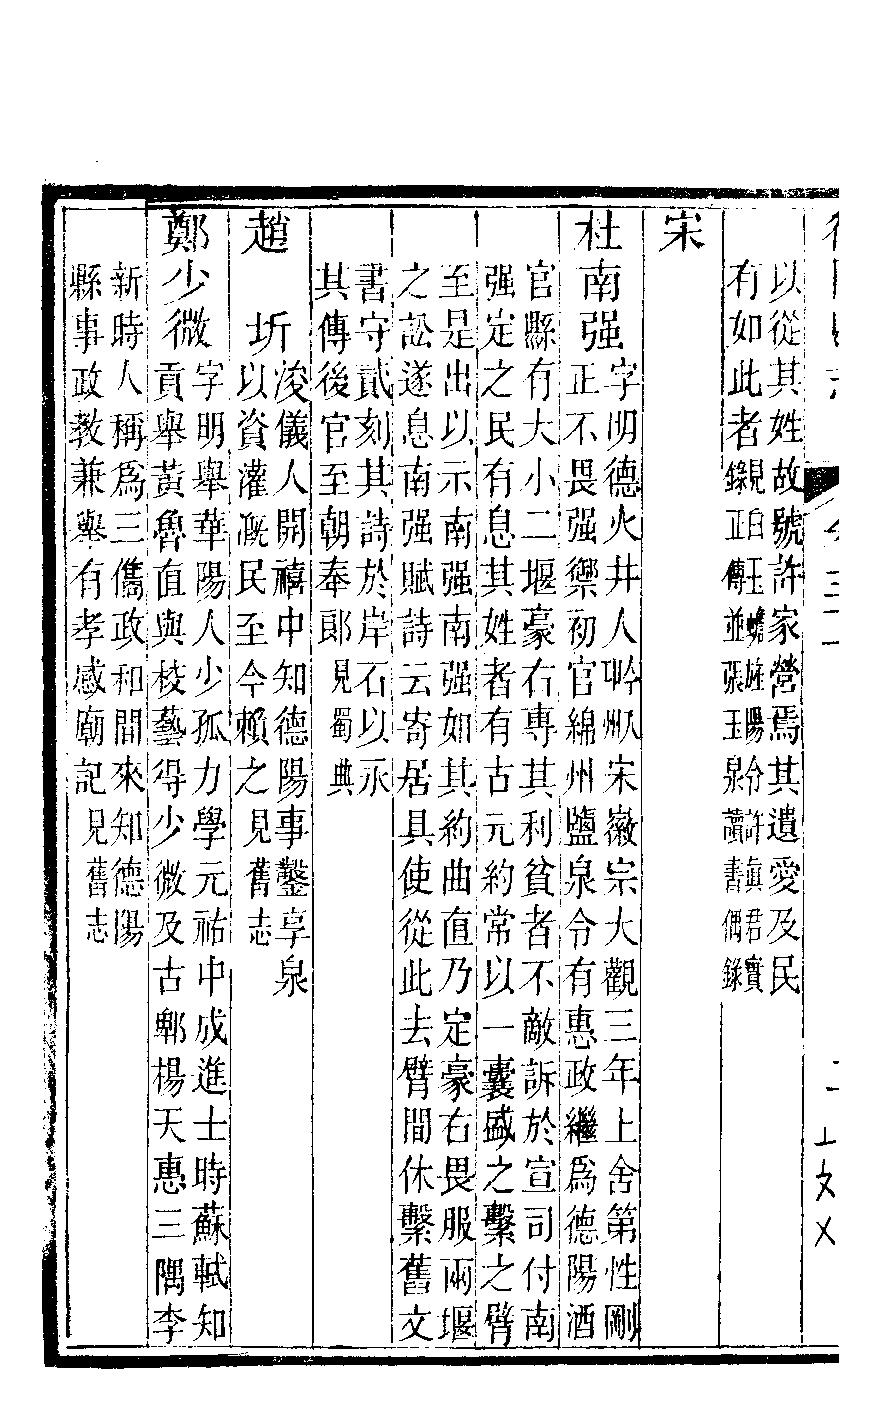 以從其姓故號許家營焉其遺愛及民
有如此者見白玉蟾旌陽令許眞君實
錄正傳並張玉泉讀書偶錄
宋
杜南强字明德火井人卭州人宋徽宗大觀三年上舍第性剛
正不畏强禦初官綿州鹽泉令有惠政繼爲德陽酒
官縣有大小二堰豪右專其利貧者不敵訴於宣司付南
强定之民有息其姓者有古元約常以一囊盛之繫之臂
至是出以示南强南强如其約曲直乃定豪右畏服兩堰
之訟遂息南强賦詩云寄居具使從此去臂間休繫舊文
書守貳刻其詩於岸石以永
其傳後官至朝奉郎見蜀典
趙圻浚儀人開禧中知德陽事鑿享泉
以資灌漑民至今賴之見舊志
鄭少微字明舉華陽人少孤力學元祐中成進士時蘇軾知
貢舉黃魯直與校藝得少微及古郫楊天惠三隅李
新時人稱爲三儁政和間來知德陽
縣事政教兼舉有孝感廟記見舊志